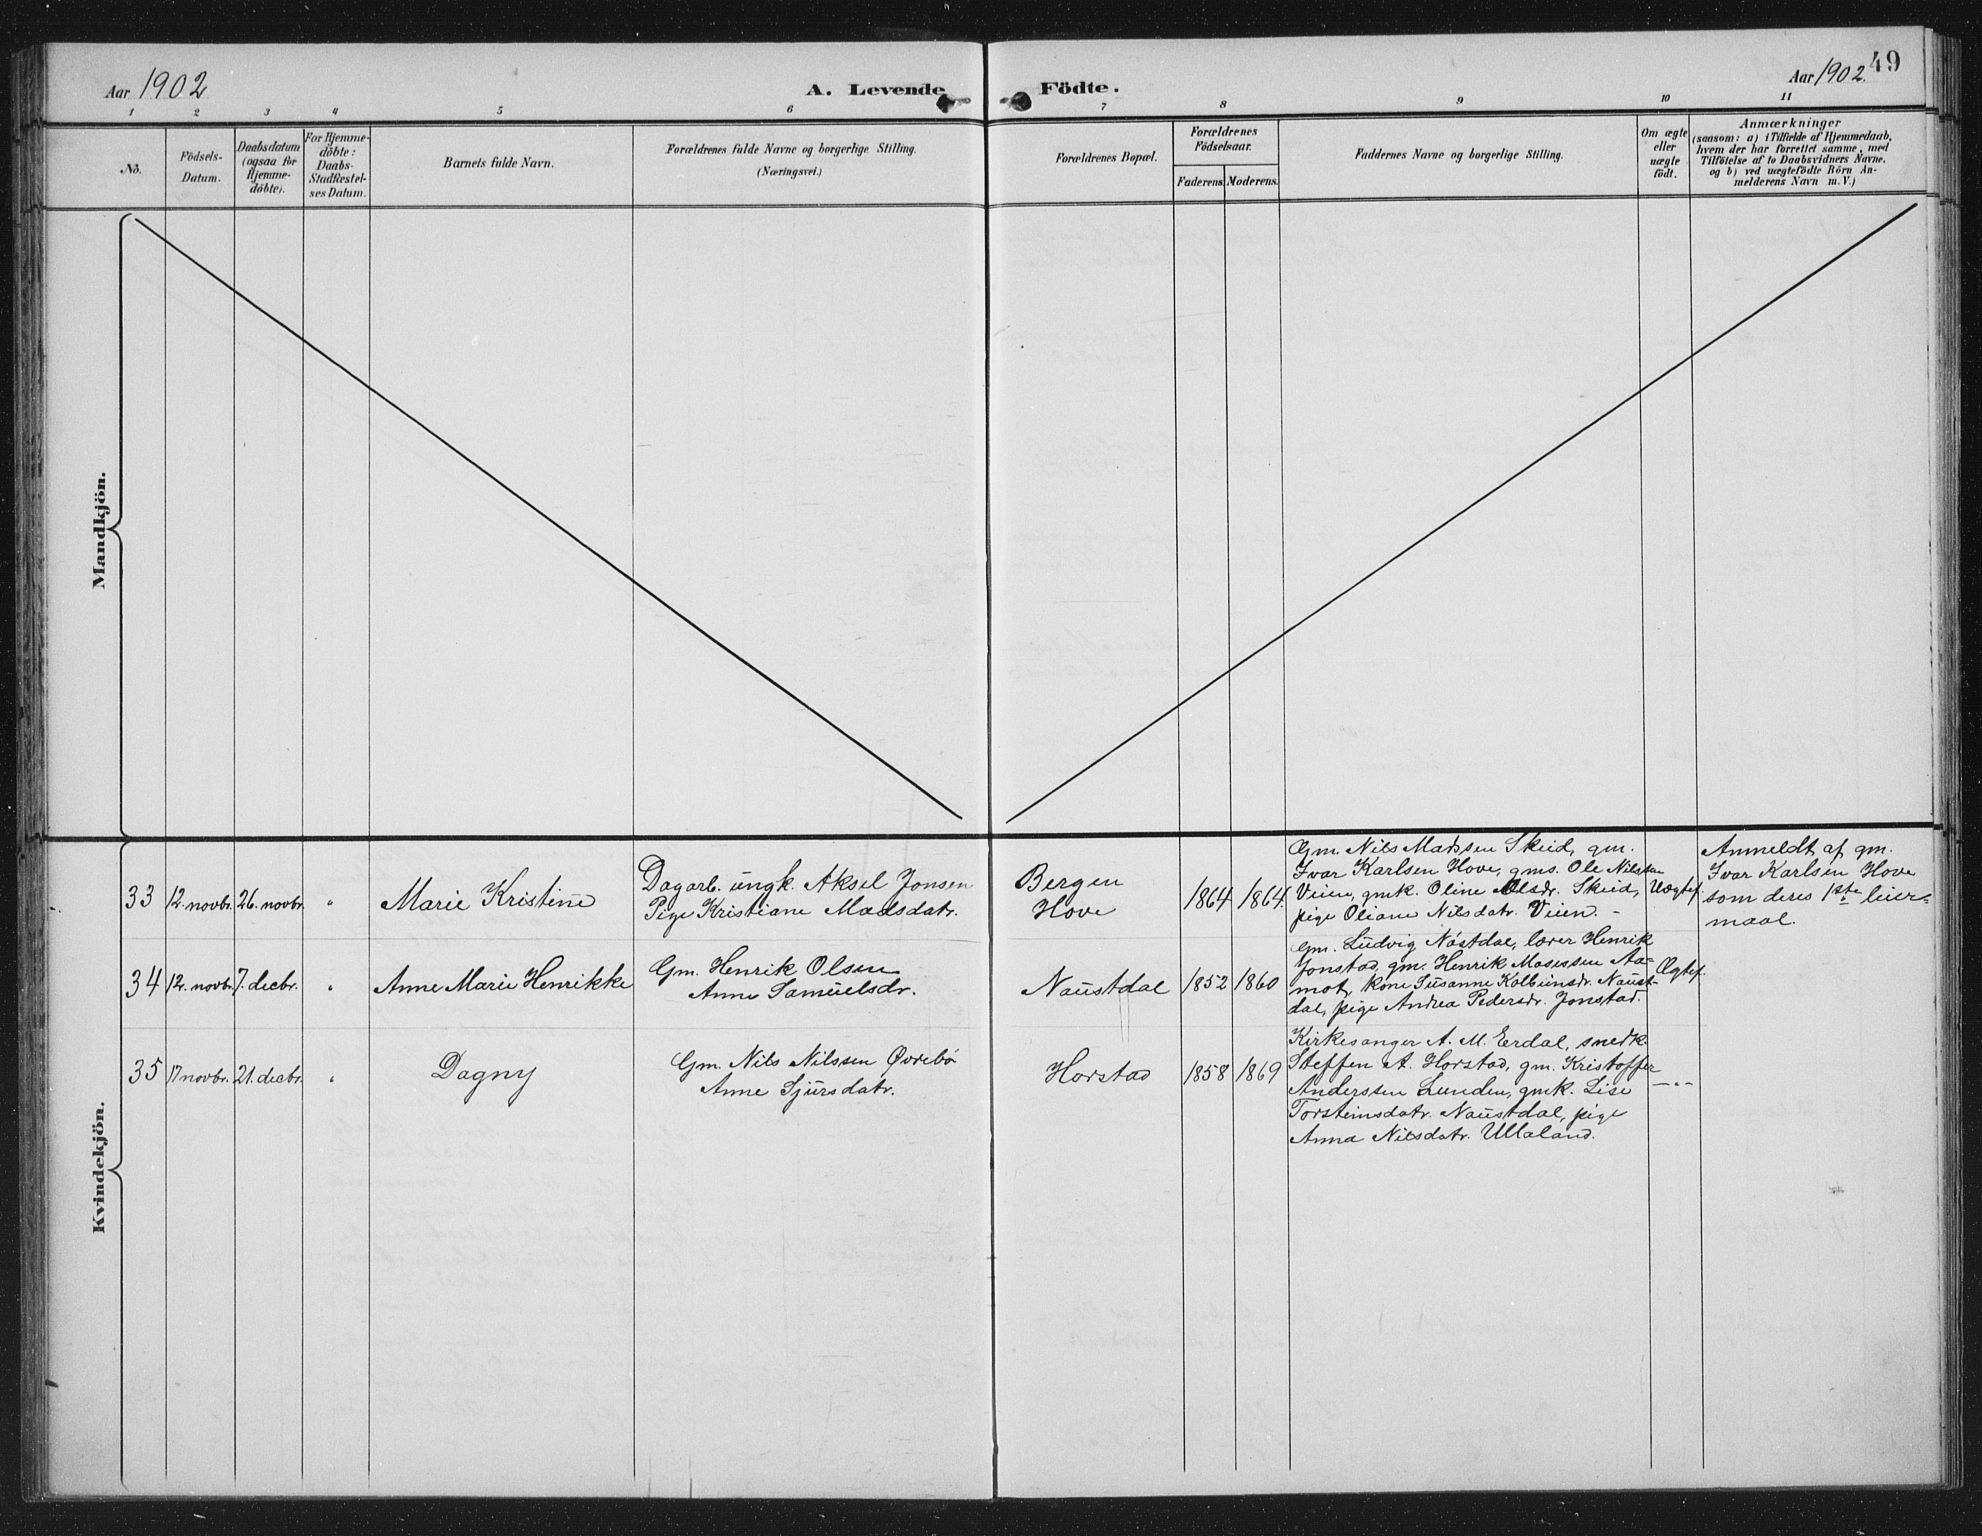 Aar 1902
A. Levende
Födte.
Aar 1902.
49
1 2 3 4 5 6 7 8 9 10 11
No.
Födsels-
Datum.
Daabsdatum
(ogsaa for
Hjemme-
döbte).
For Hjemme-
döbte:
Daabs-
Stadfæstel-
ses Datum.
Barnets fulde Navn.
Forældrenes fulde Navne og borgerlige Stilling.
(Næringsvei.)
Forældrenes Bopæl.
Forældrenes
Födselsaar.
Faderens. Moderens.
Faddernes Navne og borgerlige Stilling.
Om ægte
eller
uægte
födt.
Anmærkninger
(saasom: a) i Tilfælde af Hjemmedaab,
hvem der har forrettet samme, med
Tilföielse af to Daabsvidners Navne.
og b) ved uægtefödte Börn An-
melderens Navn m. V.)
Mandkjön.
Kvindekjön.
33 12. novbr. 26. novbr. "
Marie Kristine
Dagarb. ungk. Aksel Jonsen
Pige Kristiane Madsdatr.
Bergen
Hove
1864 1864.
Gm. Nils Madssen Skeid, gm.
Ivar Karlsen Hove, gms. Ole Nilssen
Veien, gmk. Oline Olsdr. Skeid,
pige Oliane Nilsdatr. Veien. -
Uægtef.
Anmeldt af gm.
Ivar Karlsen Hove
som deres 1ste leier-
maal.
34 12. novbr. 7. decbr. "
Anne Marie Henrikke
Gm. Henrik Olsen
Anne Samuelsdr.
Naustdal
1852 1860
Gm. Ludvig Nøstdal, lærer Henrik
Jonstad, gm. Henrik Mosessen Aa-
mot, kone Susanne Kolbeinsdr. Naust-
dal, pige Andrea Pedersdr. Jonstad.
Ægtef.
35 17 novbr. 21. decbr. "
Dagny
Gm. Nils Nilssen Øvrebø
Anne Sjursdatr.
Horstad
1858 1869
Kirkesanger A. M. Erdal, snedk.
Steffen A. Horstad, gm. Kristoffer
Anderssen Lunden, gmk. Lise
Torsteinsdatr. Naustdal, pige
Anna Nilsdatr. Ullaland.
—"—